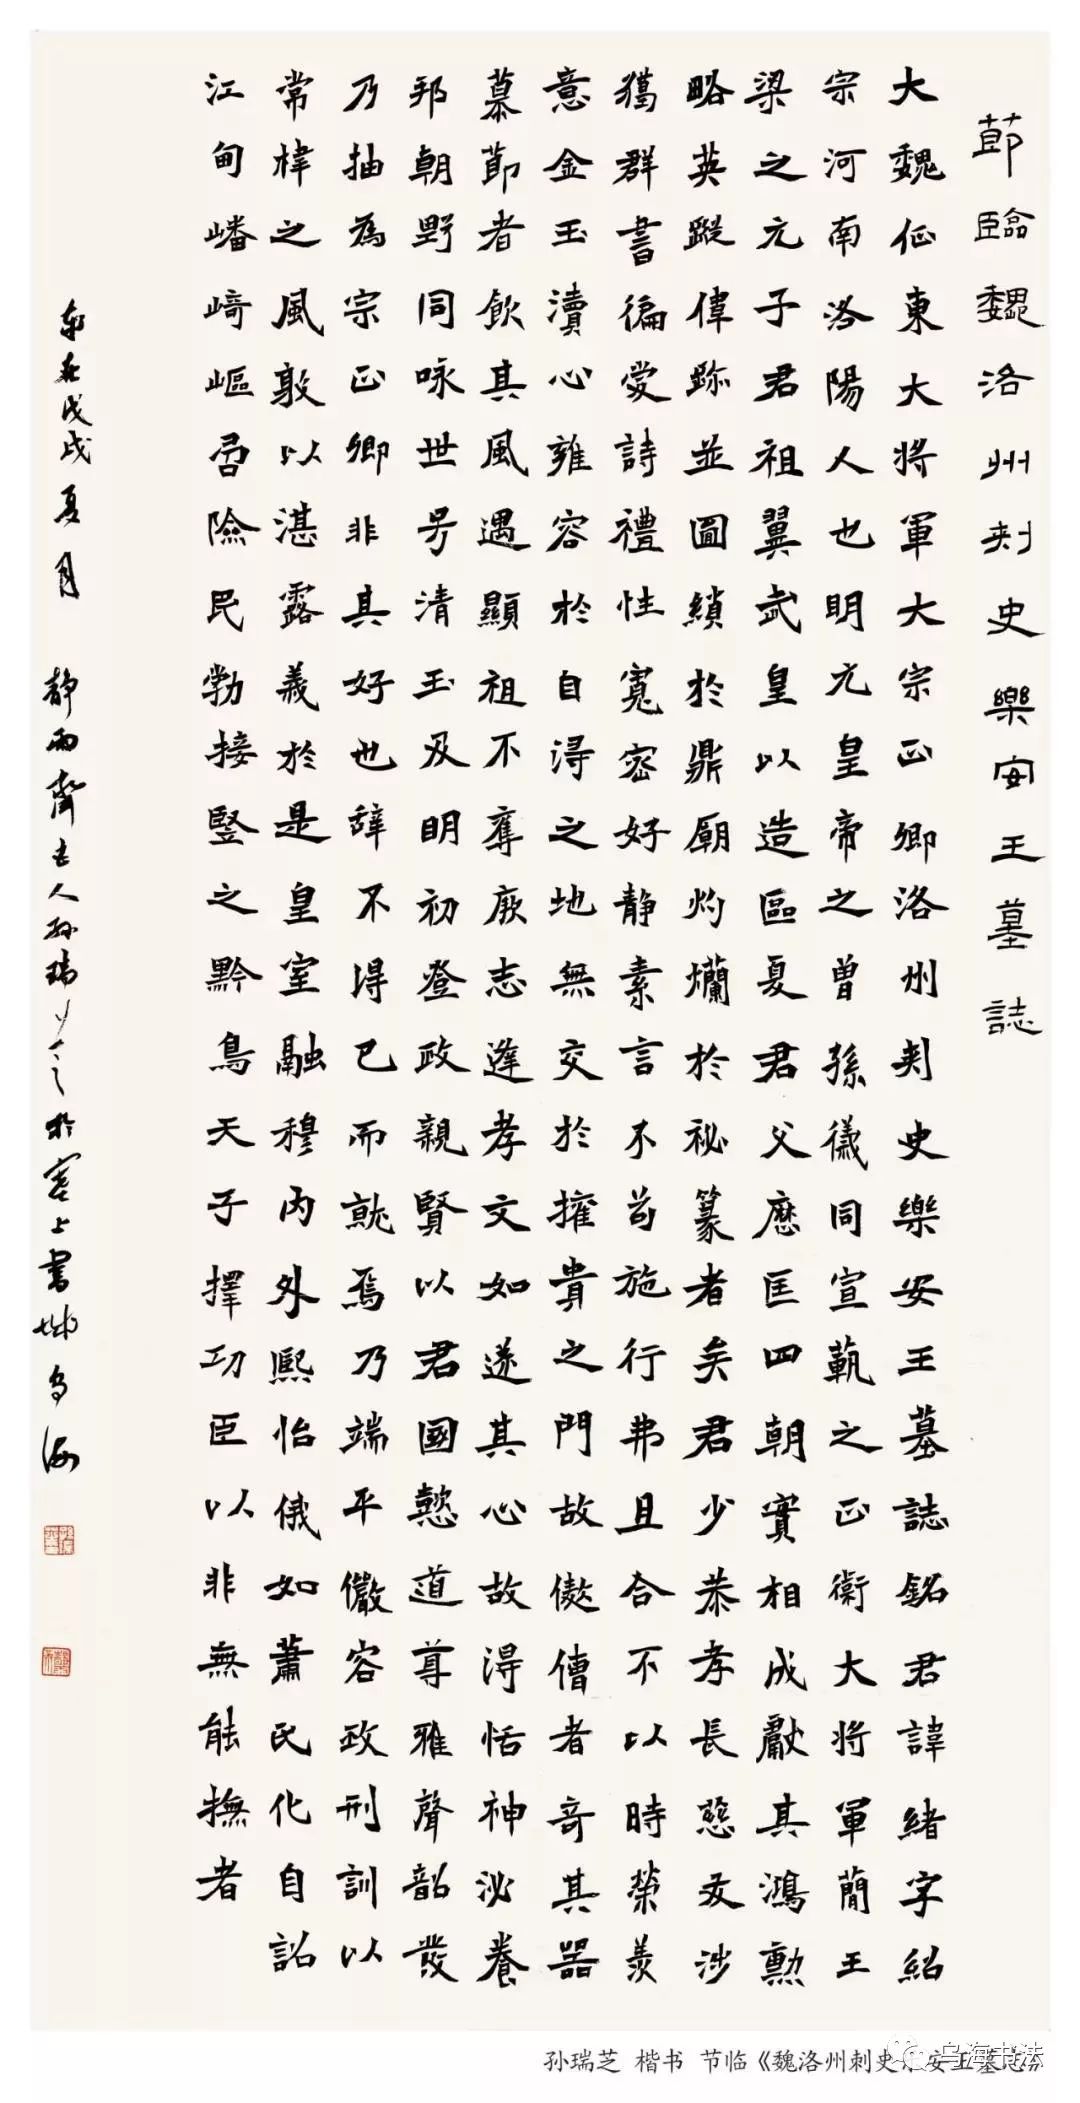 節臨魏洛州刺史樂安王墓誌
大魏征東大将軍大宗正卿洛州刺史樂安王墓誌銘君諱緒字紹
宗河南洛陽人也明元皇帝之曾孫儀同宣範之正衛大将軍簡王
梁之元子君祖翼武皇以造區夏君父應匡四朝實相成獻其鴻勳
略英蹤偉跡並圖績於鼎廟灼爛於祕篆者矣君少恭孝長慈友涉
獵群書徧愛詩禮性寬密好靜素言不苟施行弗且合不以時榮羨
意金玉瀆心雍容於自得之地無交於擁貴之門故傲儈者奇其器
慕節者飲其風遇顯祖不奪厥志逢孝文如遂其心故得恬神泌養
邦朝野同咏世号清玉及明初登政親賢以君國懿道尊雅聲韶發
乃抽為宗正卿非其好也辞不得已而就焉乃端平儼容政刑訓以
常棣之風敦以湛露義於是皇室融穆內外熙怡俄如蕭民化自詔
江甸嶓崎嶇險民勃接豎之黔鳥天子擇功臣以非無能撫者
在戊戌夏月 静雨齋主人孙瑞芝於塞上書城乌海
孙瑞芝 楷书 节临《魏洛州刺史乐安王墓志》
乌海书法